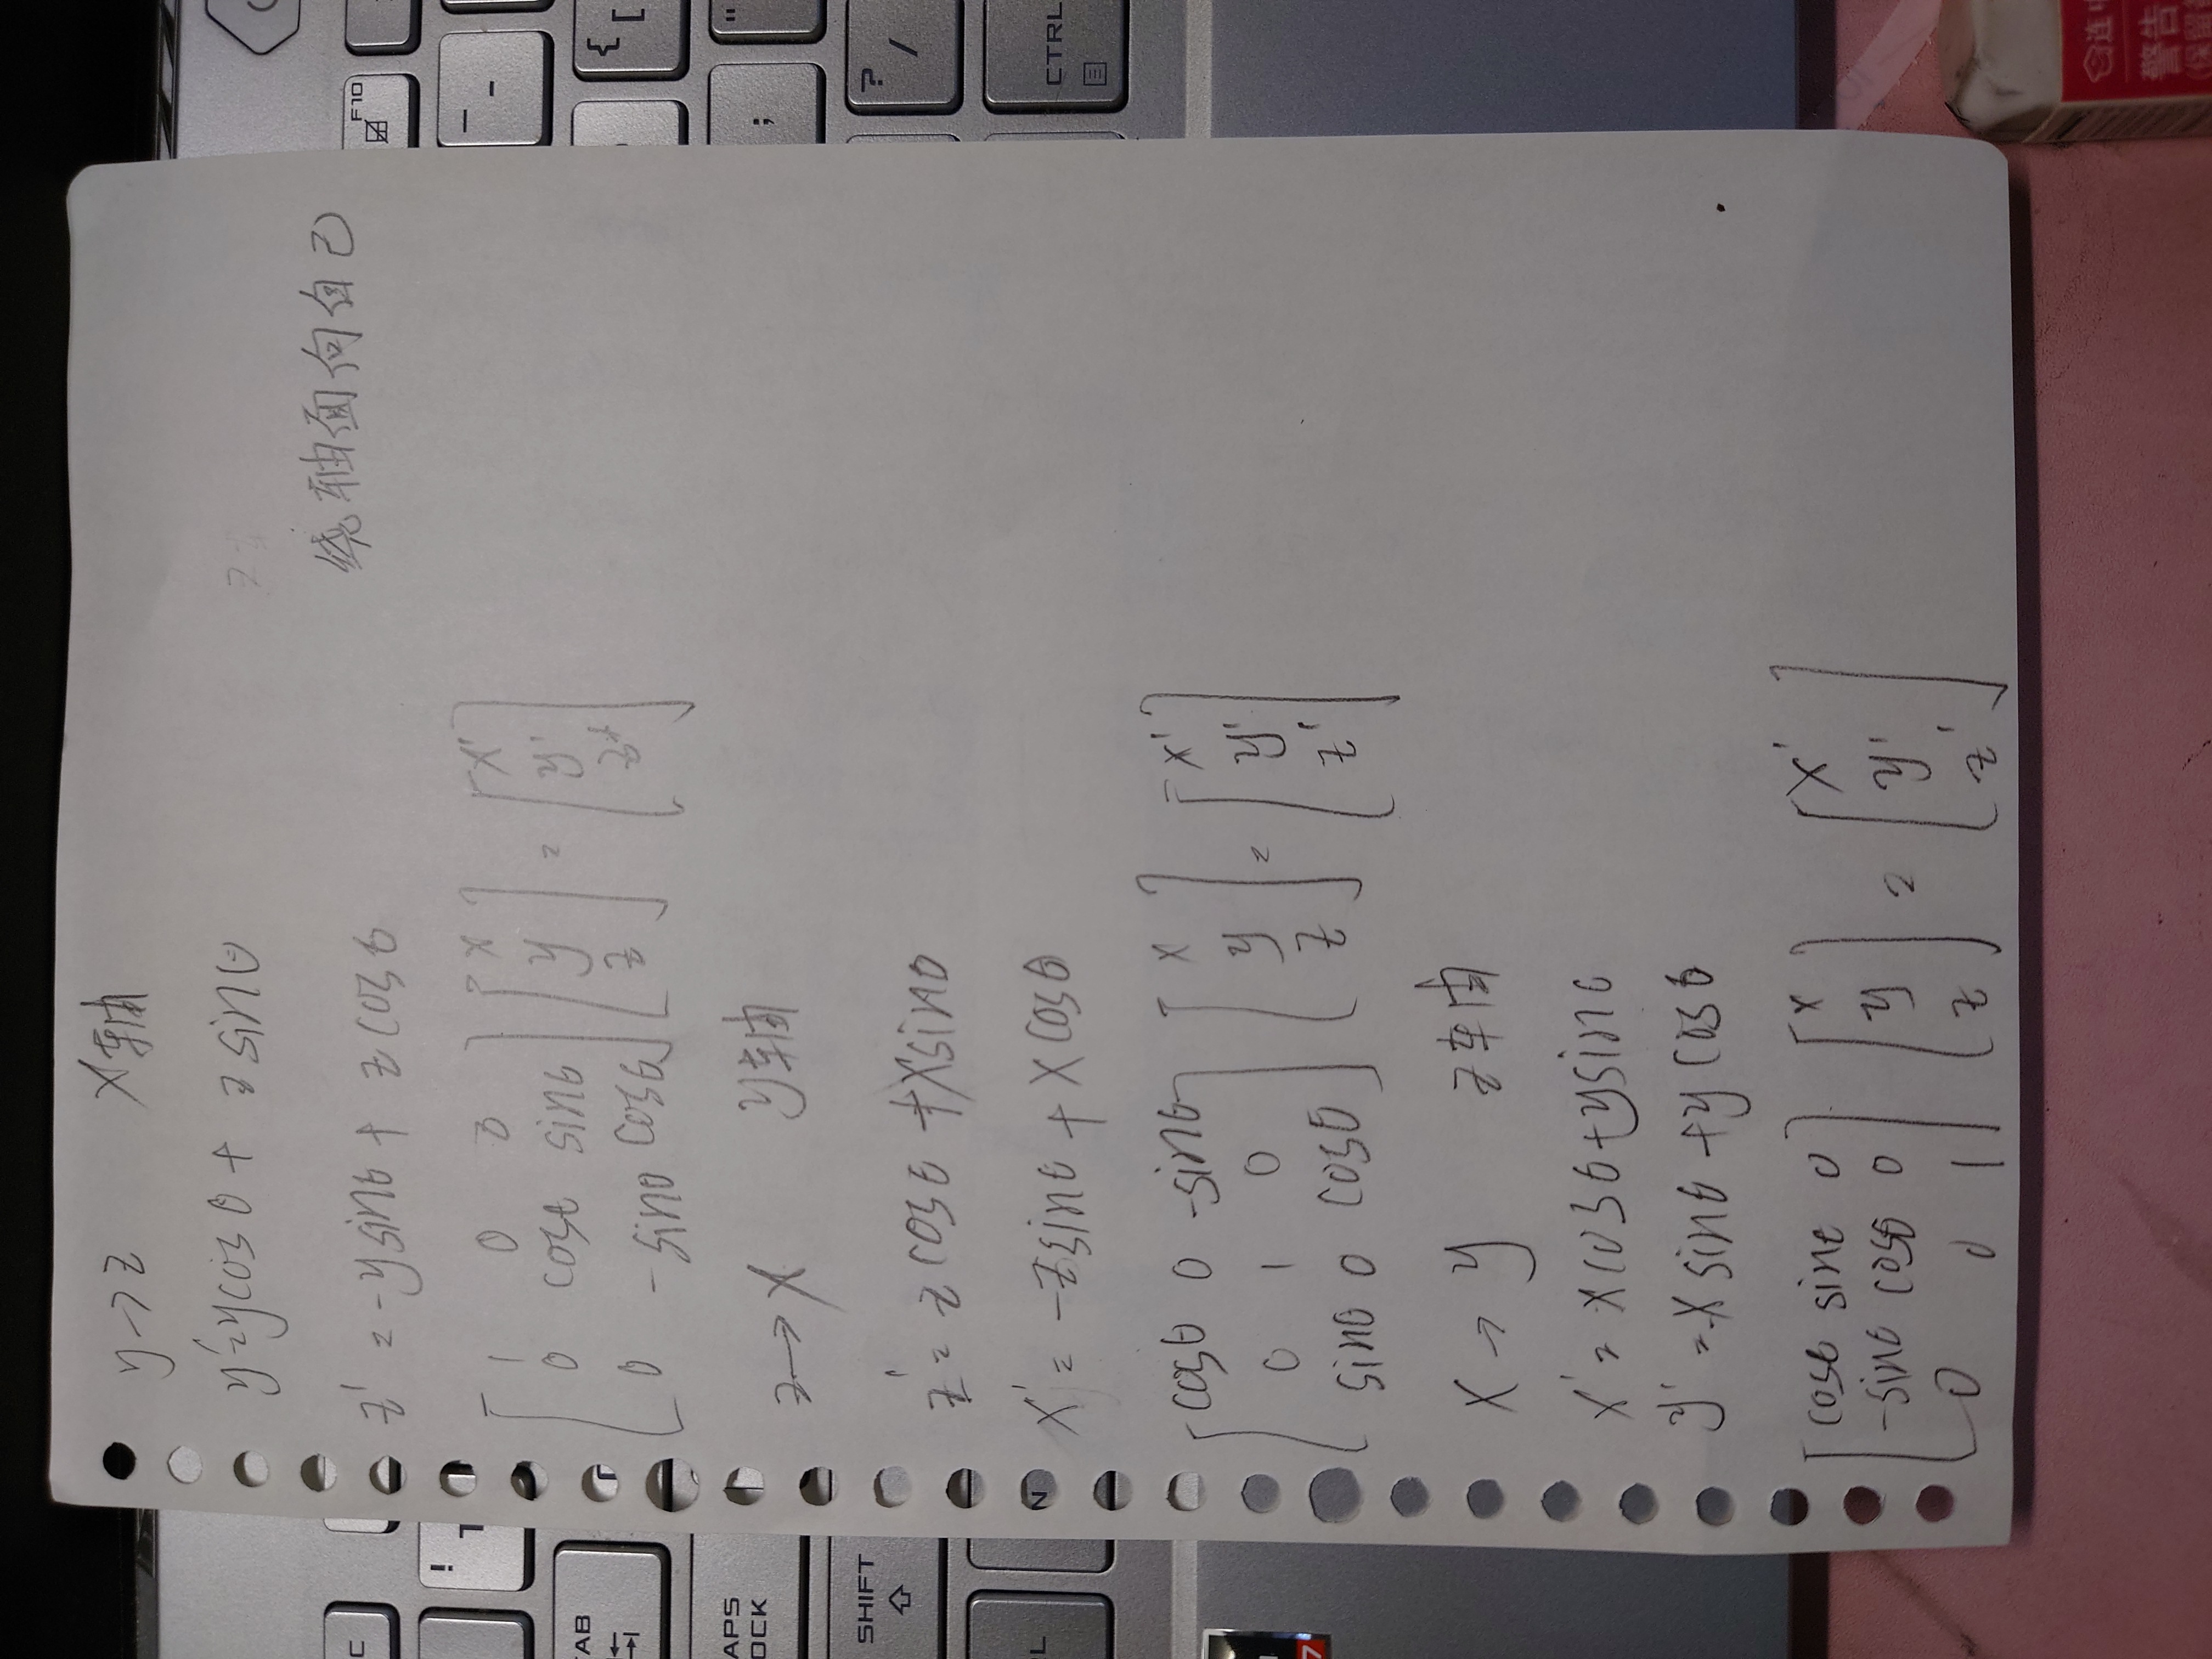 y→z X轴
y'=ycosθ + zsinθ
绕轴面向自己
z' = -ysinθ + zcosθ
[1 0 0] [x] = [x']
[0 cosθ sinθ] [y] [y']
[0 -sinθ cosθ] [z] [z']
z→X y轴
z' = zcosθ +Xsinθ
X' = -zsinθ + Xcosθ
[cosθ 0 -sinθ] [x] = [x']
[0 1 0] [y] [y']
[sinθ 0 cosθ] [z] [z']
X→y z轴
X' = xcosθ+ysinθ
y' =-Xsinθ +ycosθ
[cosθ sinθ 0] [x] = [X']
[-sinθ cosθ 0] [y] [y']
[0 0 1] [z] [z']
F10
!
TAB
SHIFT
CTRL
N
?
/
{
[
"
;
7
警告